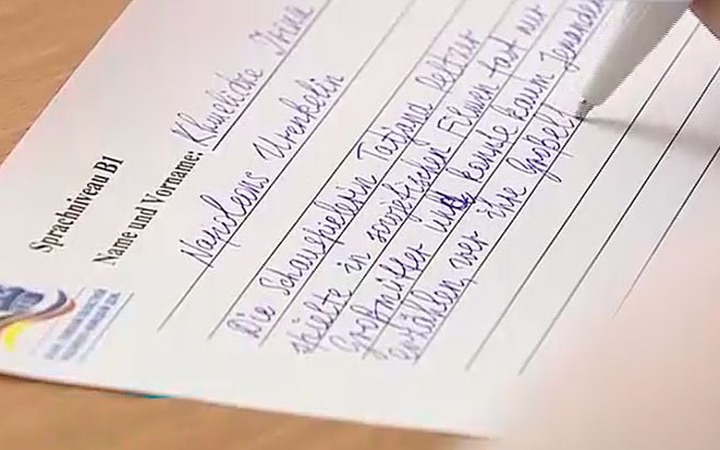 Sprachniveau B1
Name und Vorname: Khurelidze Irina
Napoleons Urenkelin
Die Schauspielerin Tatjana Peltzer
spielte in sowjetischen Filmen fast nur
Großmütter und konnte kaum jemandem
erzählen, wer ihre Großel